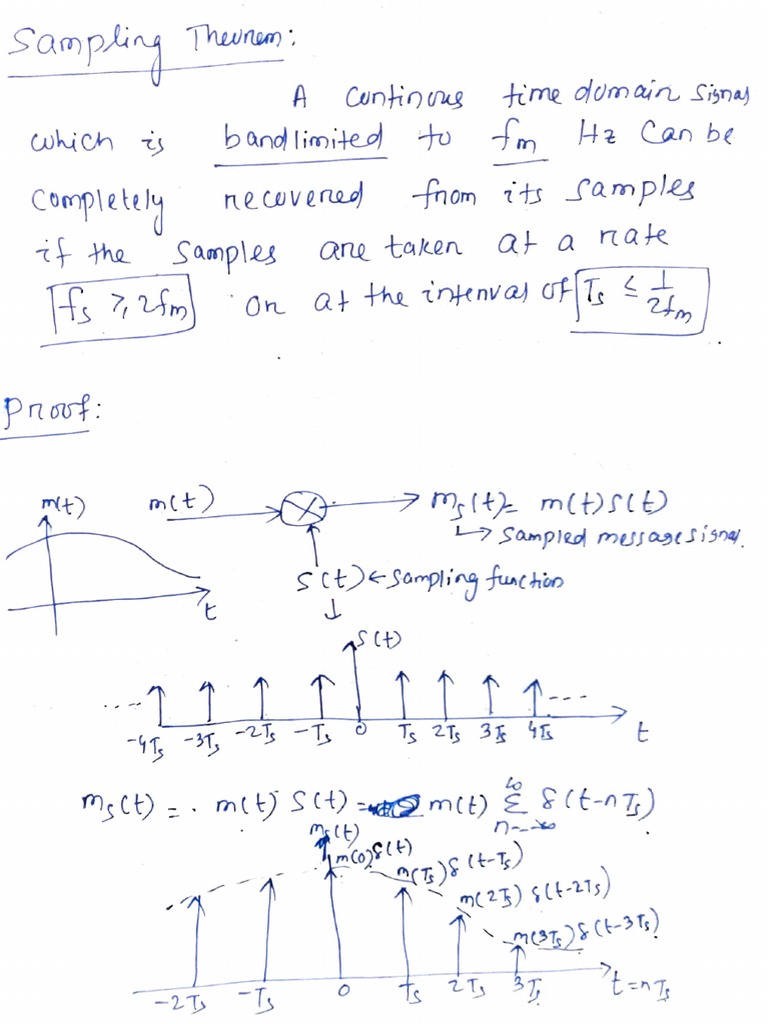 Sampling Theorem:
A continous time domain signal
which is bandlimited to fm Hz Can be
Completely recovered from its samples
if the samples are taken at a rate
fs ≥ 2fm or at the interval of Ts ≤ 1/2fm .
Proof:
m(t) m(t) ms(t)= m(t)S(t)
↳ Sampled message signal.
S(t) ← sampling function
t ↓
S(t)
... -4Ts -3Ts -2Ts -Ts 0 Ts 2Ts 3Ts 4Ts --- t
ms(t) = . m(t) S(t) = m(t) ∞Σn=-∞ δ(t-nTs)
ms(t)
m(0)δ(t)
m(Ts)δ(t-Ts)
m(2Ts) δ(t-2Ts)
m(3Ts) δ(t-3Ts)
-2Ts -Ts 0 Ts 2Ts 3Ts t=nTs